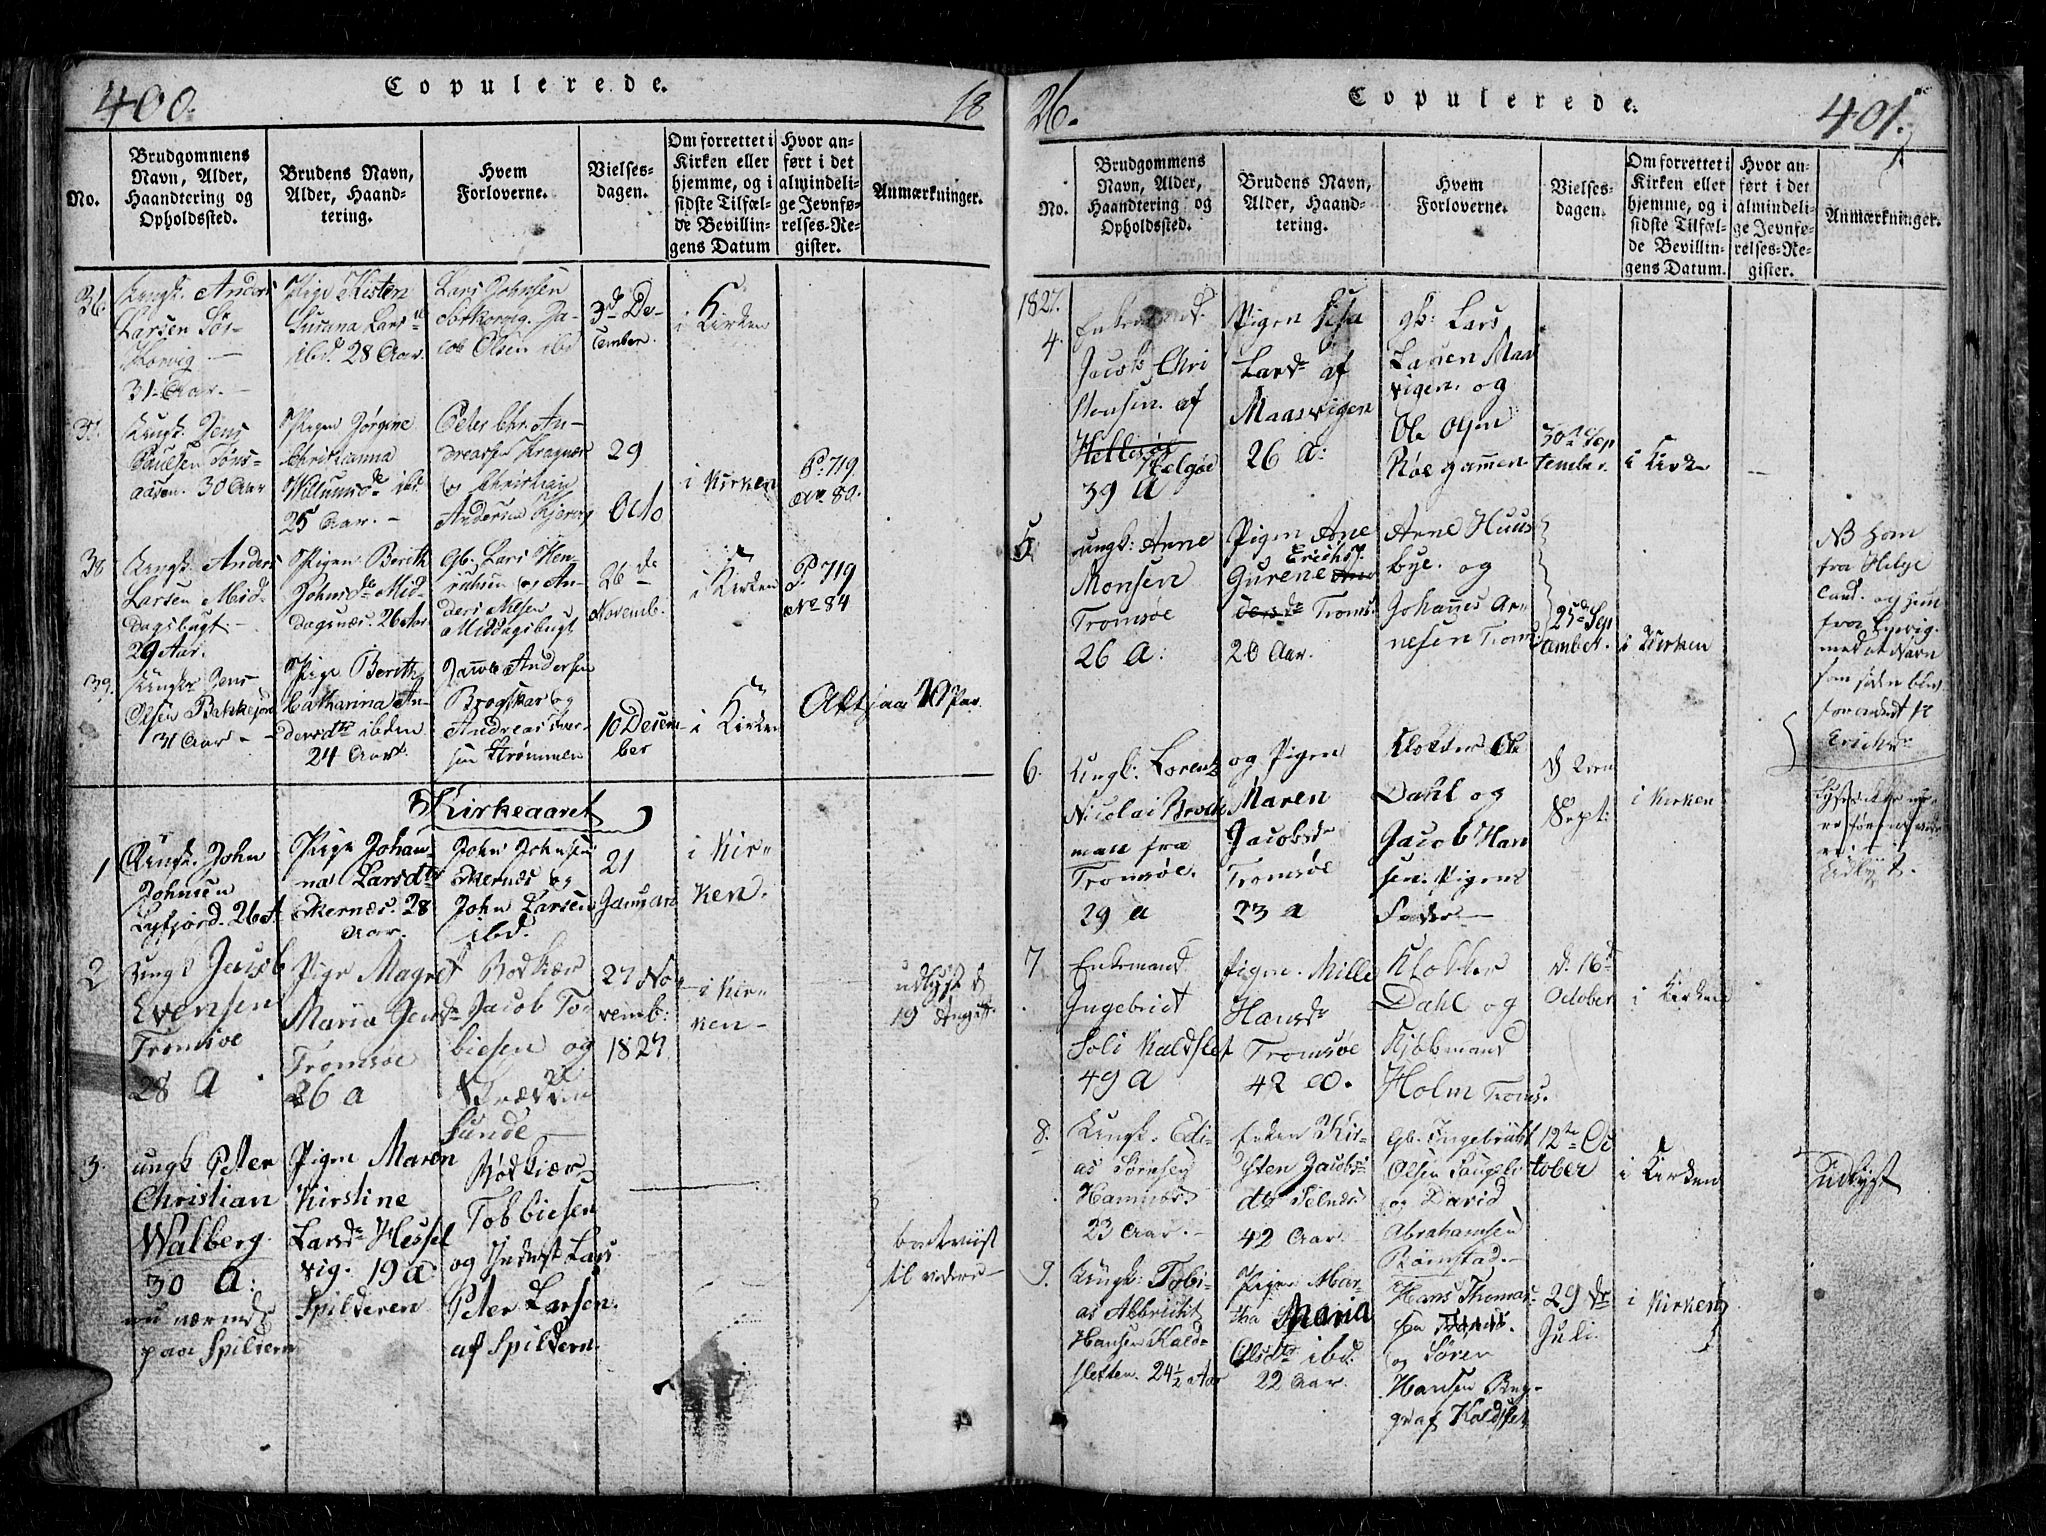 400.
Copulerede.
18
No.
Brudgommens
Navn, Alder,
Haandtering og
Opholdssted.
Brudens Navn,
Alder, Haand-
tering.
Hvem
Forloverne.
Vielses-
dagen.
Om forrettet i
Kirken eller
hjemme, og i
sidste Tilfæl-
de Bevillin-
gens Datum
Hvor an-
ført i det
almindeli-
ge Jevnfø-
relses-Re-
gister.
Anmærkninger.
36.
Ungk. Anders
Larsen
31 Aar.
Pige Kisten
Susana Larsd
ibd. 28 Aar.
Lars Johnsen
Ja-
cob Olsen ibd
3d De-
cember.
i Kirken
37.
Ungk. Jens
Paulsen Tøns-
aasen. 30 Aar
Pigen Jørgine
Christianna
Willumsd ibd.
25 Aar.
Peter Chr. An-
dreasen Kragnæs
og Christian
Andersen
29
Octo
i Kirken
P. 719
No 80.
38
Ungk. Anders
Larsen Mid-
dagsbugt.
29 Aar.
Pigen Berith
Johnsdr Mid-
dagsnæs. 26 Aar
Gb. Lars Hen-
riksen og An-
ders Nilsen
Middagsbugt
26 de
Novemb.
i Kirken
P. 719
No 84
39.
Ungkr Jens
Olsen Bakkejord
31 Aar
Pige Berith
Catharina An-
dersdtr ibden
24 Aar.
Jacob Andersen
og
Andreas Iver-
sen Strømmen
10 Decem-
ber
i Kirken
Kirkeaaret
1
Ungk. John
Johnsen
Lyfjord. 26 A
Pige Johan-
na Larsdtr
Skernæs. 28
Aar.
John Johnsen
Skernæs og
John Larsen
ibd.
21
Januari
i Kir-
ken.
2
Ungk Jacob
Evensen
Tromsøe
28 A
Pige Magret
Maria Jensdr
Tromsøe
26 a
Bødkjær
Jacob To-
biesen og
Sunde
27 No-
vemb:
1827
i Kir-
ken
udlyst d
19 August
3.
ungk Peter
Christian
Walberg.
30 A:
nu nærende
paa Spildern
Pigen Maren
Kirstine
Larsdr Hessel
vig. 19 a
Spilderen
Bødkjær
Tobbiesen
og Inderst Lars
Peter Larsen.
af Spildern.
bortreist
26.
Copulerede.
401.
No.
Brudgommens
Navn, Alder,
Haandtering og
Opholdssted.
Brudens Navn,
Alder, Haand-
tering.
Hvem
Forloverne.
Vielses-
dagen.
Om forrettet i
Kirken eller
hjemme, og i
sidste Tilfæl-
de Bevillin-
gens Datum.
Hvor an-
ført i det
almindeli-
ge Jevnfø-
relses-Re-
gister.
Anmærkninger.
1827.
4.
Enkemand
Jacob Chri
stensen. af
Helgøe
39 A
Pigen Sisa
Larsdr af
Maasvigen
26 A:
gb: Lars
Larsen Maas
vigen. og
Ole Olsen
Røegammen
30d Sep
tember.
i Kirke
5.
ungk: Arne
Monsen
Tromsøe
26 A:
Pigen Ane
Erichsd
Gurene
Troms.
20 Aar.
Arne Huus
bye. og
Johannes Ar-
nesen Troms.
25d Sep
tember.
i Kirken
NB Som
fra Helge
land. og
Erichs.
6.
Ungk: Lorentz
Nicolai
man fra
Tromsøe.
29 a
og Pigen
Maren
Jacobsdr
Tromsøe
23 a
Klokker Ole
Dahl og
Jacob Han
sen. Pigens
Fader.
Sept:
i Kirken
7
Enkemand
Ingebrict
Soli Kaldslet
49 A
Pigen. Mille
Hansdr
Tromsøe
42 a.
Klokker
Dahl og
Kjøbmand
Holm Troms.
d. 16d
October
i Kirken
8.
Ungk: Edi-
as Sørnsen
23 Aar.
Enken Kir-
sten Jacobs
dtr Selnæs
42 Aar.
gb. Ingebrikt
Olsen
og David
Abrahamsen
12te Oc
tober
i Kirken
Udlyst
9.
Ungk: Tobi-
as Albrickt
Hansen Kald-
sletten. 24½ Aar
Pige Mar-
tha Maria
Olsdtr ibd.
22 Aar.
Hans Thomas-
sen
og Søren
Hansen Byg-
29 de
Juli.
i Kirken